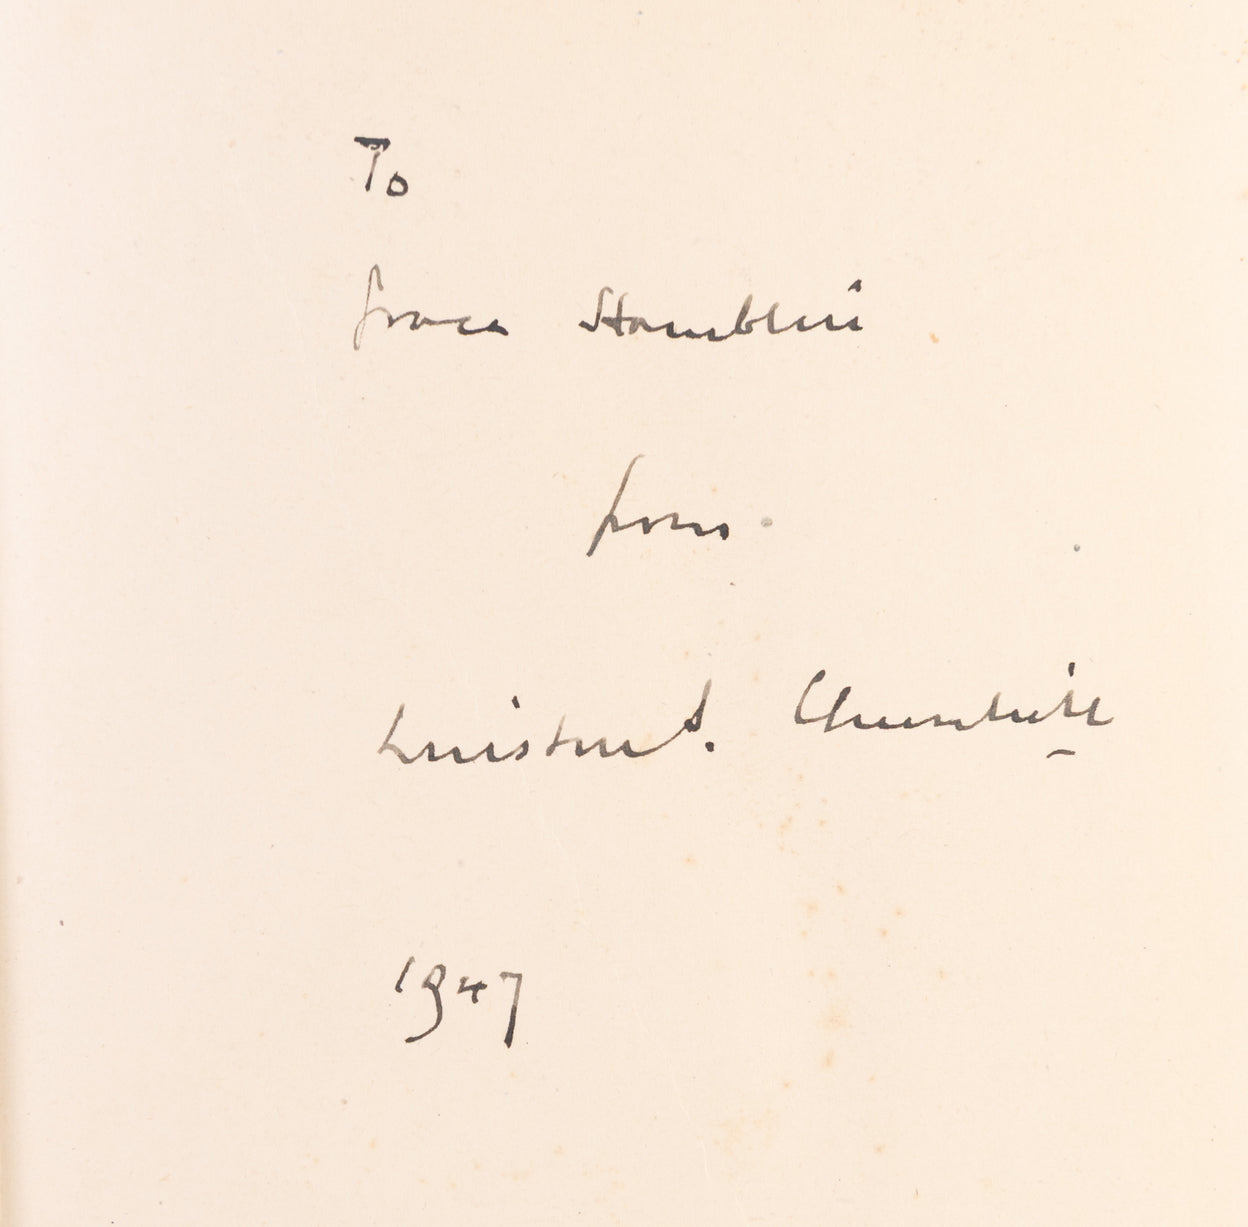 To
Grace Hamblin
from
Winston S. Churchill
1947